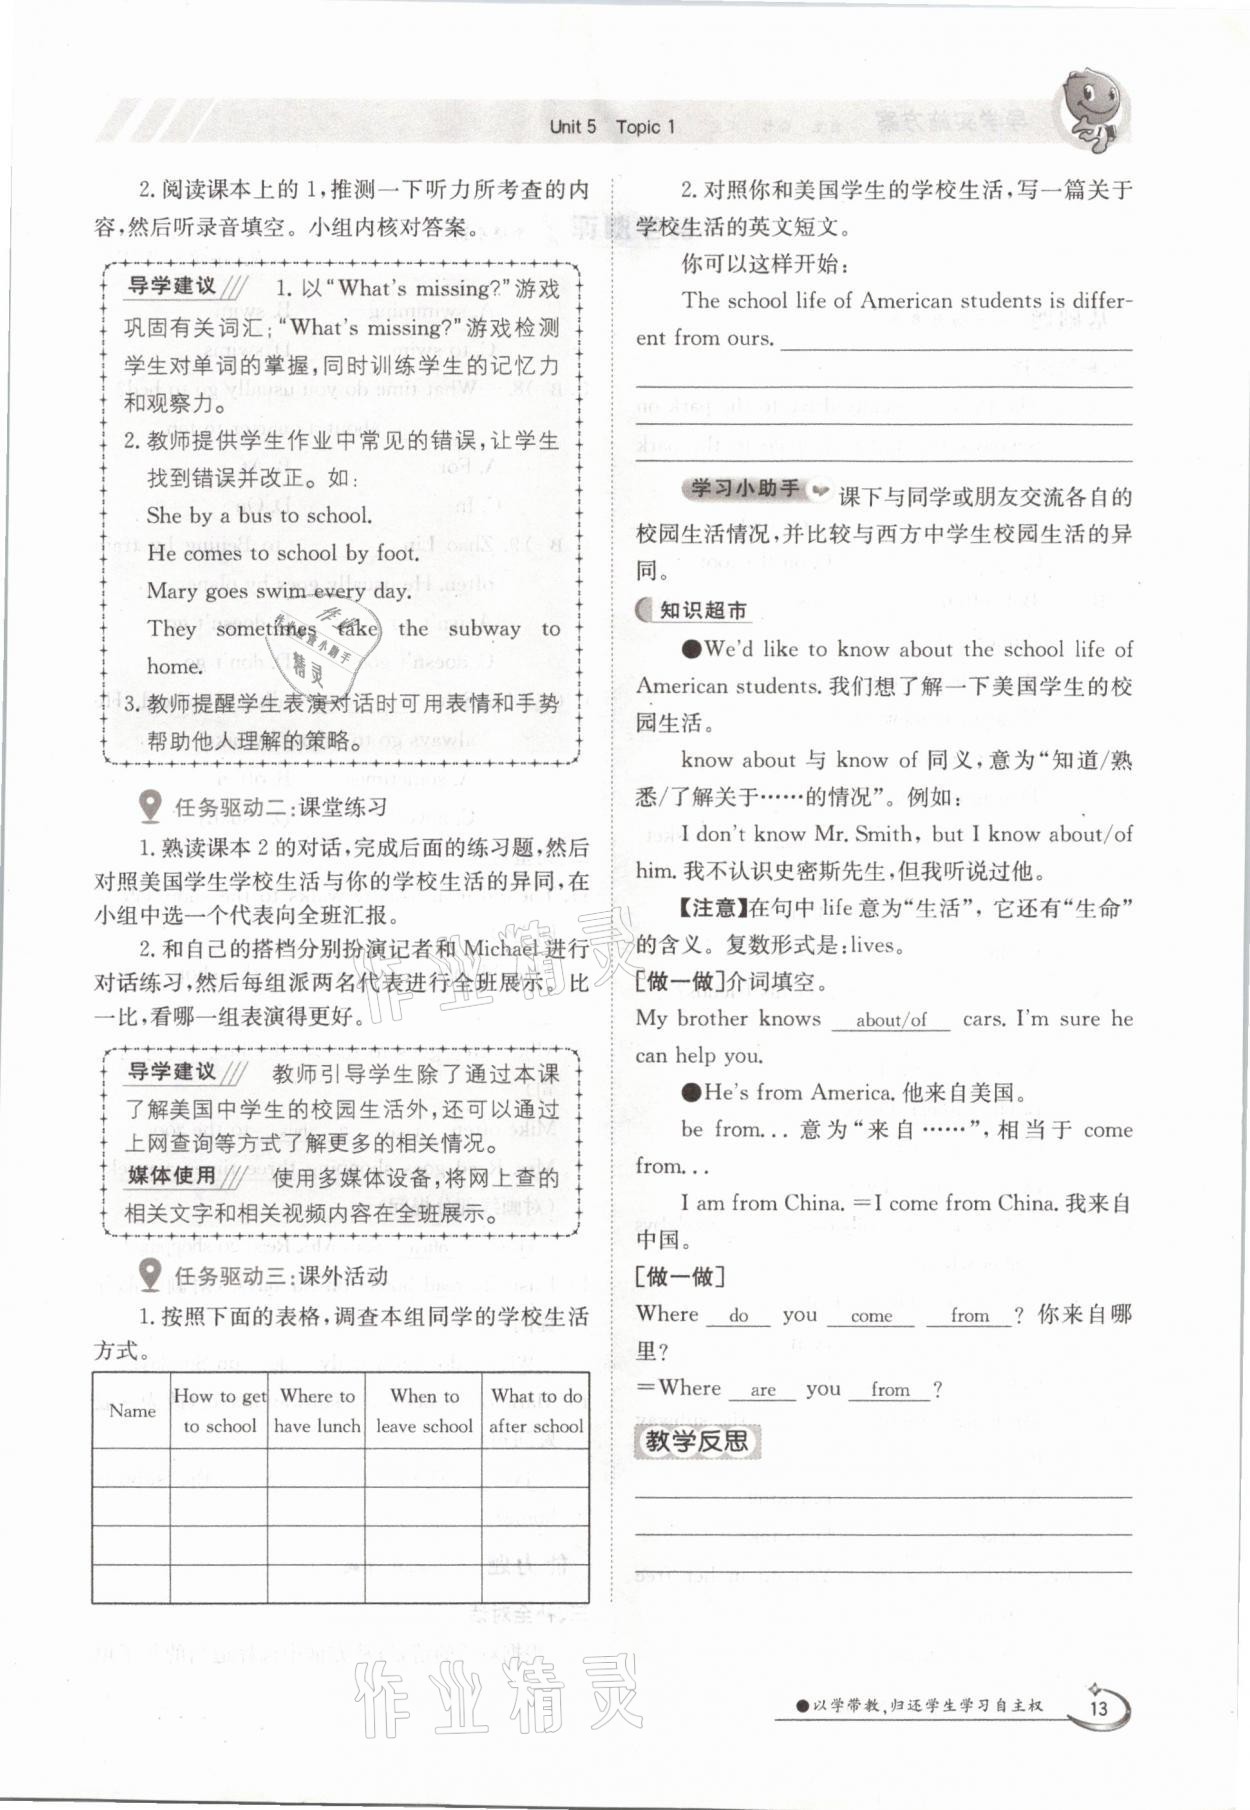 Unit 5 Topic 1
2.阅读课本上的1,推测一下听力所考查的内
容,然后听录音填空。小组内核对答案。
导学建议 1. 以“What's missing?”游戏
巩固有关词汇;“What's missing?”游戏检测
学生对单词的掌握,同时训练学生的记忆力
和观察力。
2. 教师提供学生作业中常见的错误,让学生
找到错误并改正。如:
She by a bus to school.
He comes to school by foot.
Mary goes swim every day.
They sometimes take the subway to
home.
3. 教师提醒学生表演对话时可用表情和手势
帮助他人理解的策略。
任务驱动二:课堂练习
1.熟读课本2的对话,完成后面的练习题,然后
对照美国学生学校生活与你的学校生活的异同,在
小组中选一个代表向全班汇报。
2.和自己的搭档分别扮演记者和 Michael 进行
对话练习,然后每组派两名代表进行全班展示。比
一比,看哪一组表演得更好。
导学建议 教师引导学生除了通过本课
了解美国中学生的校园生活外,还可以通过
上网查询等方式了解更多的相关情况。
媒体使用 使用多媒体设备,将网上查的
相关文字和相关视频内容在全班展示。
任务驱动三:课外活动
1.按照下面的表格,调查本组同学的学校生活
方式。
Name How to get to school Where to have lunch When to leave school What to do after school
2.对照你和美国学生的学校生活,写一篇关于
学校生活的英文短文。
你可以这样开始:
The school life of American students is differ-
ent from ours.
学习小助手 课下与同学或朋友交流各自的
校园生活情况,并比较与西方中学生校园生活的异
同。
知识超市
●We'd like to know about the school life of
American students.我们想了解一下美国学生的校
园生活。
know about 与 know of 同义,意为“知道/熟
悉/了解关于……的情况”。例如:
I don't know Mr. Smith, but I know about/of
him.我不认识史密斯先生,但我听说过他。
【注意】在句中 life 意为“生活”,它还有“生命”
的含义。复数形式是:lives。
[做一做]介词填空。
My brother knows about/of cars. I'm sure he
can help you.
●He's from America.他来自美国。
be from... 意为“来自……”,相当于 come
from...
I am from China. =I come from China.我来自
中国。
[做一做]
Where do you come from ? 你来自哪
里?
=Where are you from ?
教学反思
●以学带教,归还学生学习自主权
13
作业精灵
作业精灵